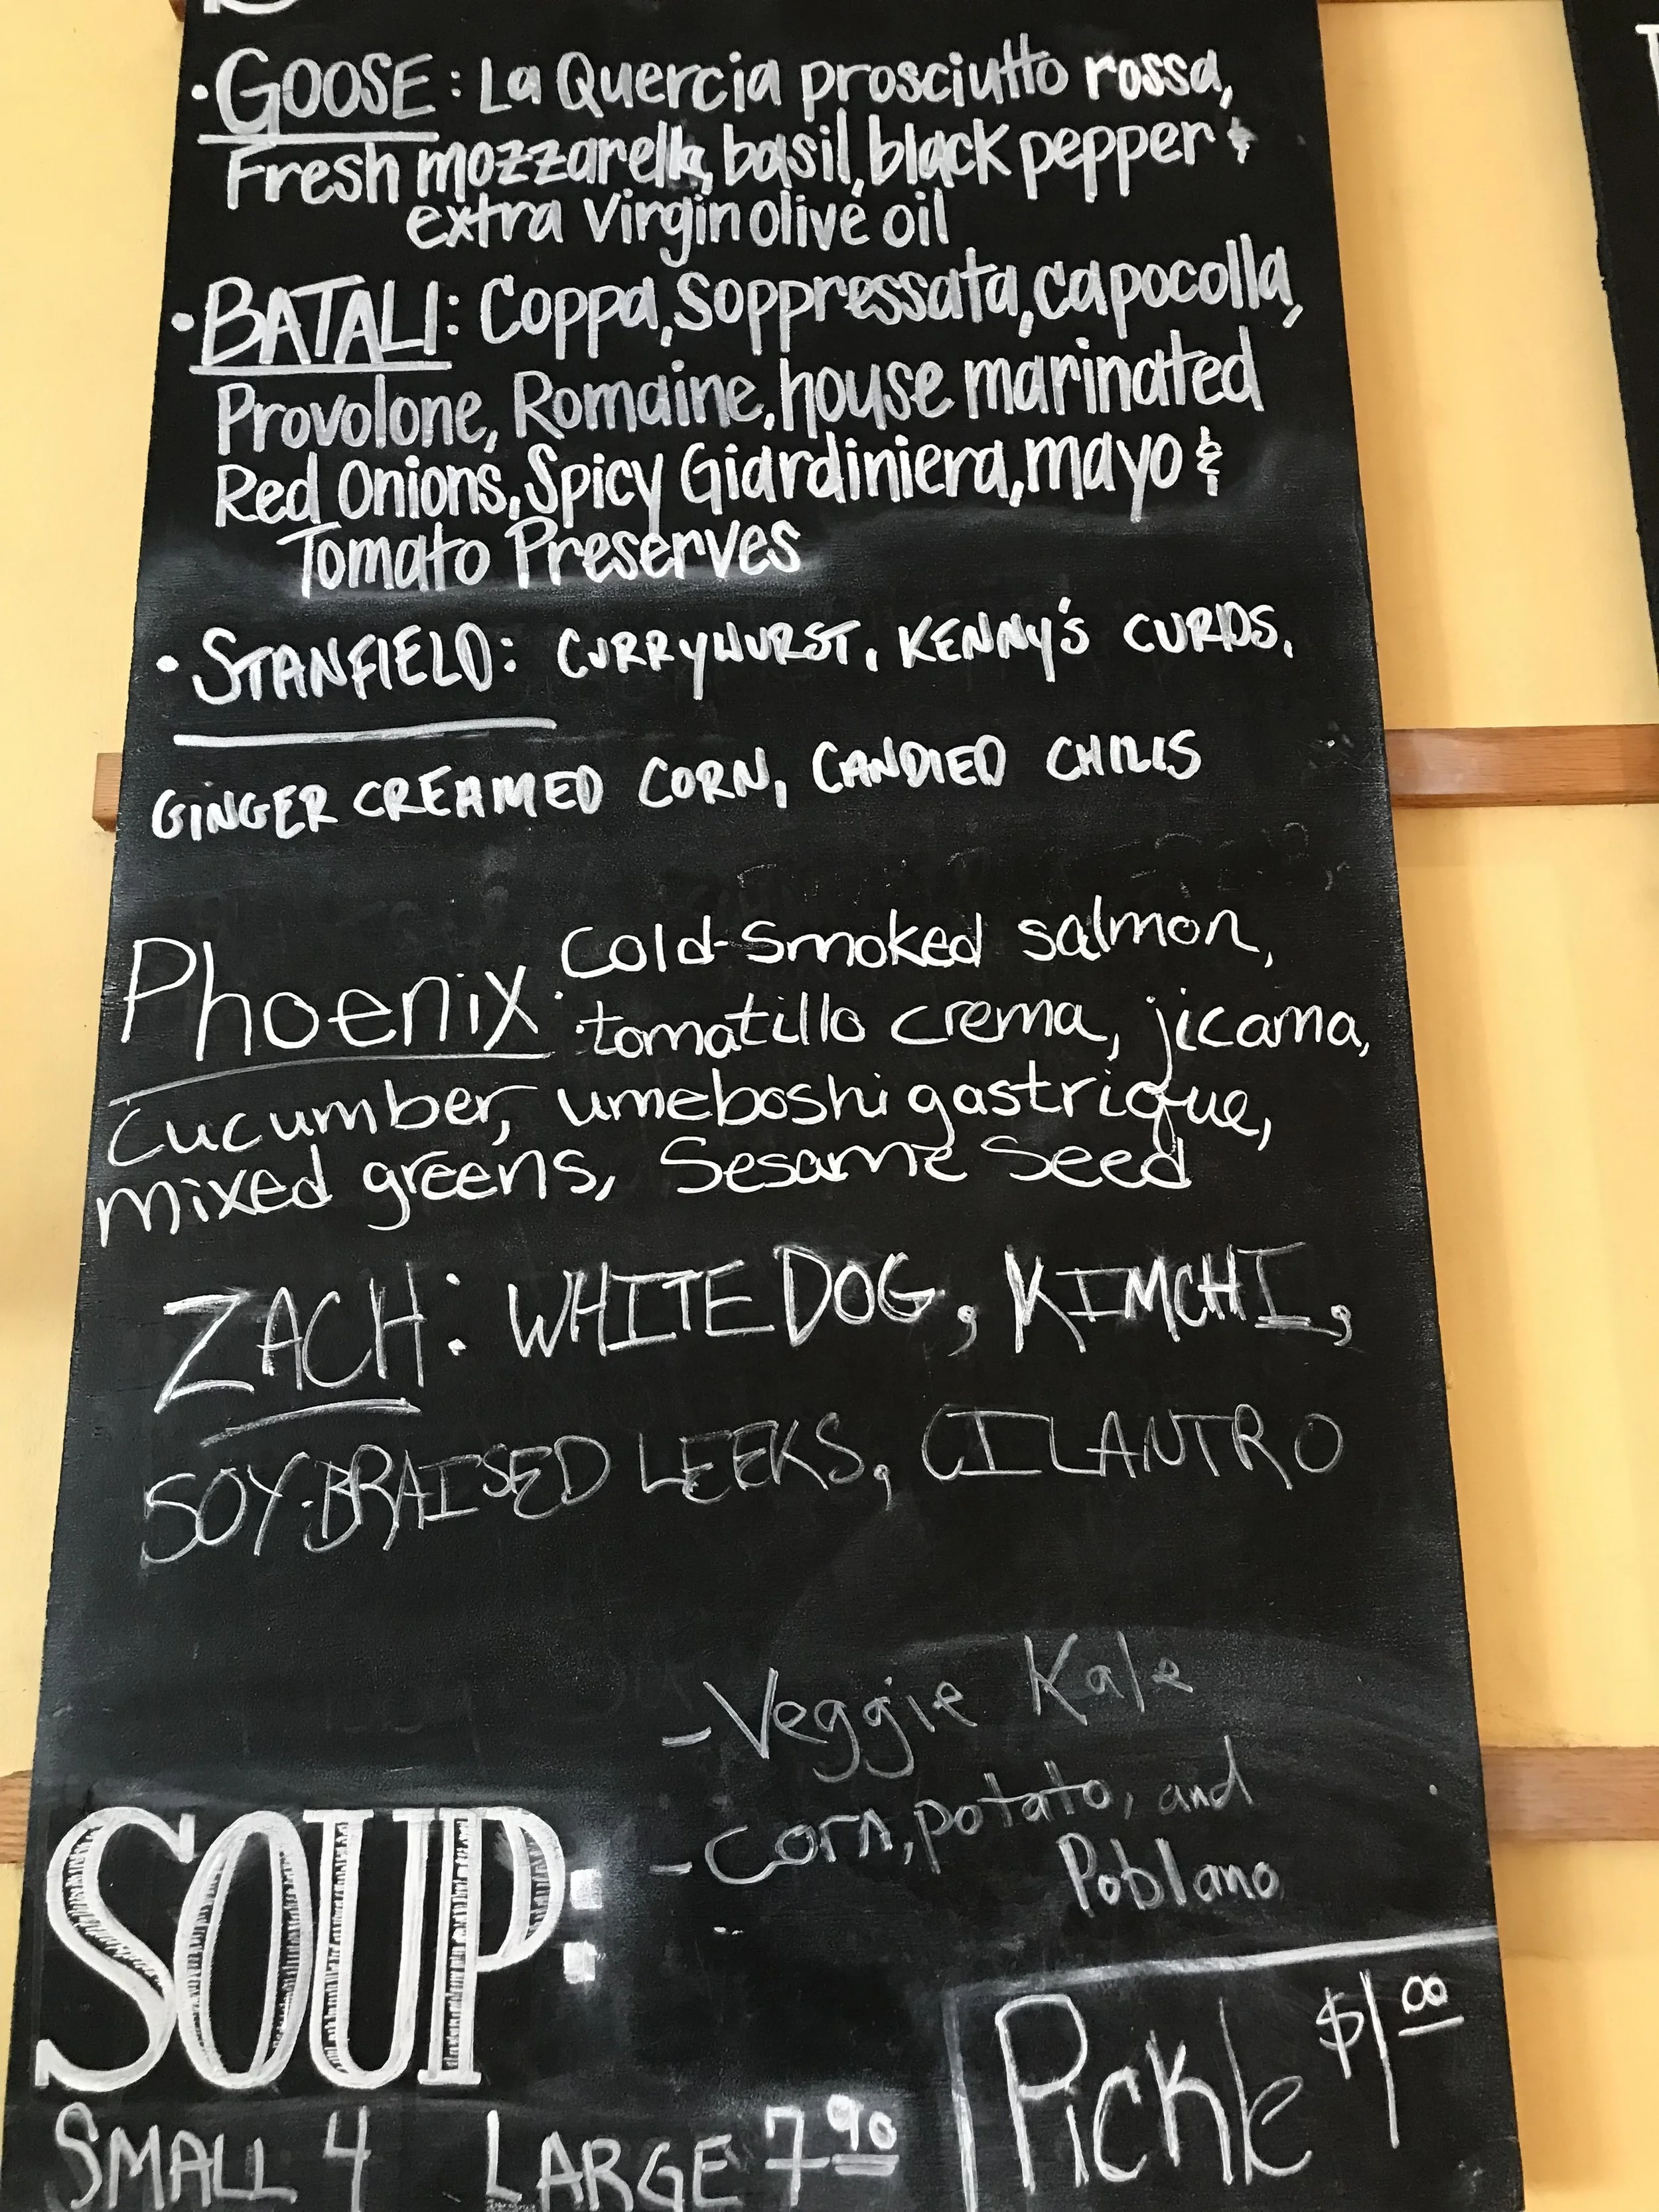 • GOOSE: La Quercia prosciutto rossa,
Fresh mozzarella, basil, black pepper &
extra virgin olive oil
• BATALI: Coppa, Soppressata, capocolla,
Provolone, Romaine, house marinated
Red Onions, Spicy Giardiniera, mayo &
Tomato Preserves
• STANFIELD: CURRYWURST, KENNY'S CURDS,
GINGER CREAMED CORN, CANDIED CHILIS
Phoenix: Cold-Smoked salmon,
tomatillo crema, jicama,
cucumber, umeboshi gastrique,
mixed greens, Sesame Seed
ZACH: WHITE DOG, KIMCHI,
SOY-BRAISED LEEKS, CILANTRO
- Veggie Kale
- Corn, potato, and
Poblano
SOUP:
SMALL 4 LARGE 7.90
Pickle $1.00